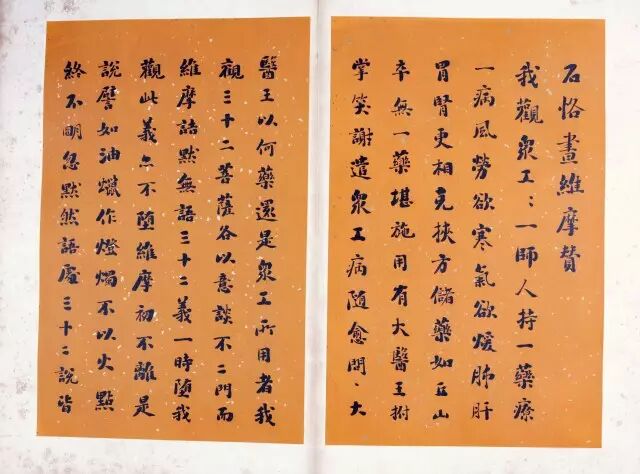 石恪畫維摩贊
我觀衆工〻一師人持一藥療
一病風勞欲寒氣欲煖肺肝
胃腎更相克挾方儲藥如丘山
卒無一藥堪施用有大醫王拊
掌笑謝遣衆工病隨愈問〻大
醫王以何藥還是衆工所用者我
觀三十二菩薩各以意談不二門而
維摩詰默無語三十二義一時墮我
觀此義亦不墮維摩初不離是
說譬如油蠟作燈燭不以火點
終不明忽默然語處三十二說皆